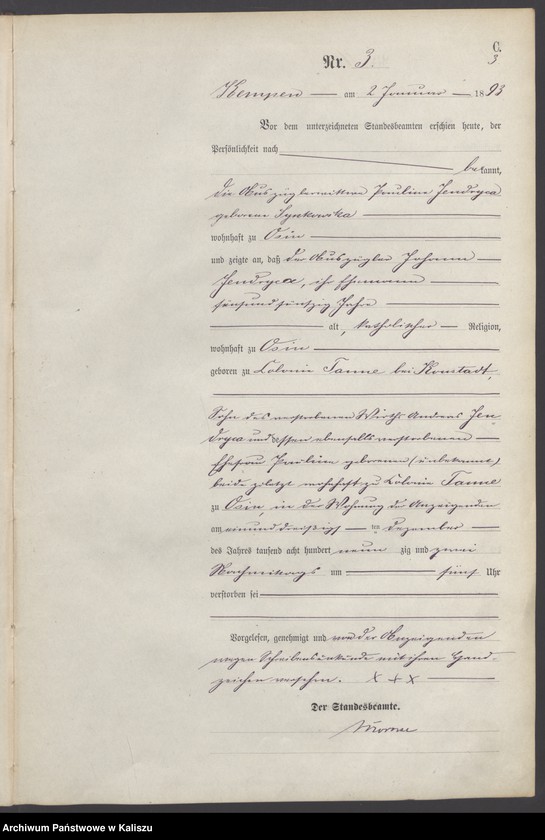 C.
3
Nr. 3.
Kempen am 2 Januar 1893
Vor dem unterzeichneten Standesbeamten erschien heute, der
Persönlichkeit nach
bekannt,
die Auszüglerwittwe Pauline Jendryca
geborene
wohnhaft zu Osin
und zeigte an, daß der Auszügler Johann
Jendryca, ihr Ehemann
fünfundfünfzig Jahre
alt, katholischer Religion,
wohnhaft zu Osin
geboren zu Colonie Tanne bei Konstadt,
Sohn des verstorbenen Wirths Andreas Jen
dryca und dessen ebenfalls verstorbenen
Ehefrau Pauline geborenen (unbekannt)
beide zuletzt wohnhaft zu Colonie Tanne
zu Osin, in der Wohnung der Anzeigenden
am einunddreißigsten Dezember
des Jahres tausend acht hundert neunzig und zwei
Nachmittags um fünf Uhr
verstorben sei
Vorgelesen, genehmigt und von der Anzeigenden
wegen Schreibensunkunde mit ihren Hand-
zeichen versehen. X + X
Der Standesbeamte.
Archiwum Państwowe w Kaliszu